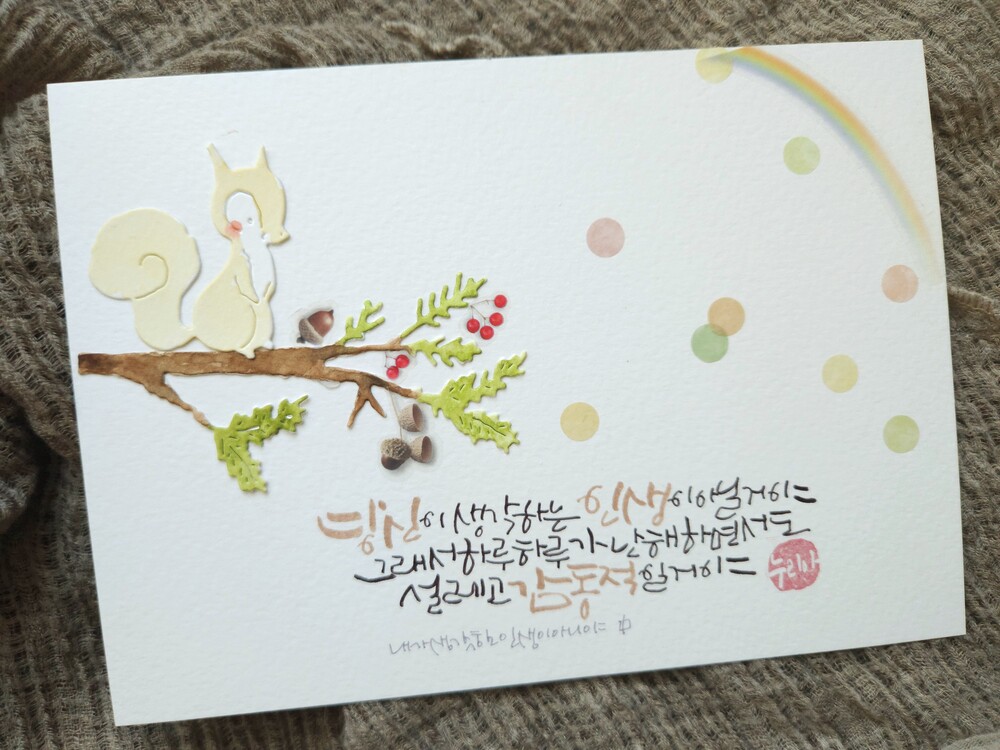 당신이 생각하는 인생이 아닐거야
그래서 하루하루가 난해하면서도
설레고 감동적일거야
누리아
내가 생각한 인생이 아니야 中